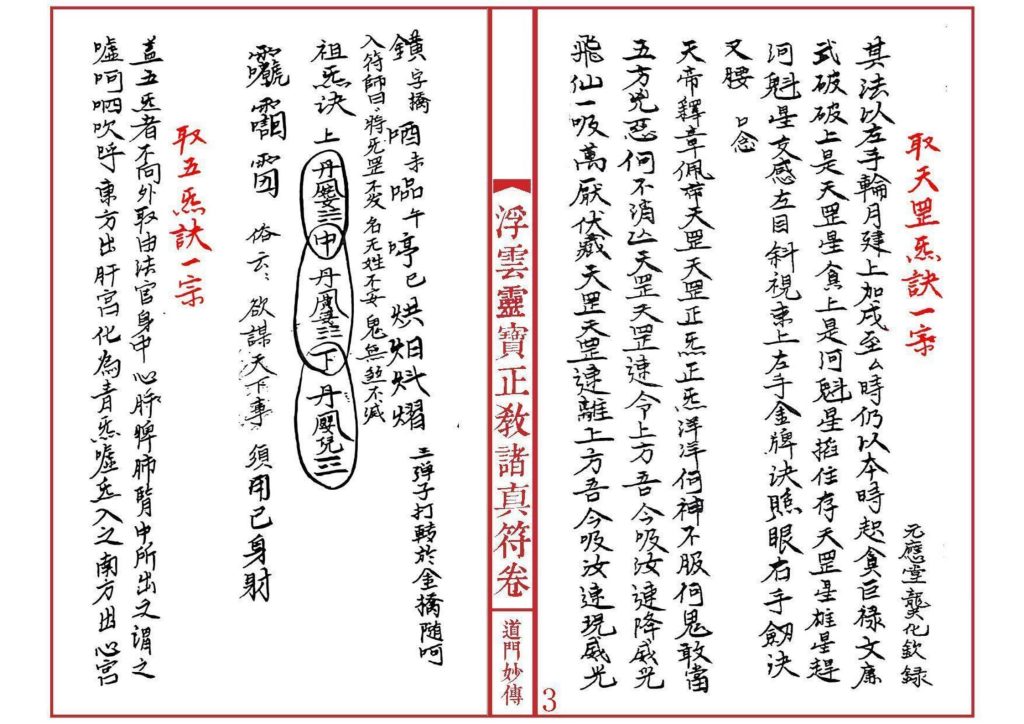 取天罡炁訣一宗
元應堂龔化欽録
其法以左手輪月建上加戌至么時仍以本時起貪巨禄文廉
式破破上是天罡星貪上是河魁星掐住存天罡星雄星趕
河魁星交感左目斜視東上左手金牌訣照眼右手劒訣
叉腰 口念
天帝釋章佩帯天罡天罡正炁正炁洋洋何神不服何鬼敢當
五方兇惡何不消亾天罡天罡速令上方吾今吸汝速降威光
飛仙一吸萬厭伏藏天罡天罡速離上方吾今吸汝速現威光
浮雲靈寶正教諸真符卷
道門妙傳
3
鐄字橋 唒未㗊午嘚巳烘炟炓熠 三弾子打轉於金橋随呵
入符師曰将死罡不发名无姓不安鬼無煞不滅
祖炁訣 上丹嬰三中丹嬰三下丹嬰兒三
俗云:欲謀天下事 須用己身射
取五炁訣一宗
盖五炁者不向外取由法官身中心肝脾肺腎中所出又謂之
噓呵呬吹呼東方出肝宫化為青炁噓炁入之南方出心宫